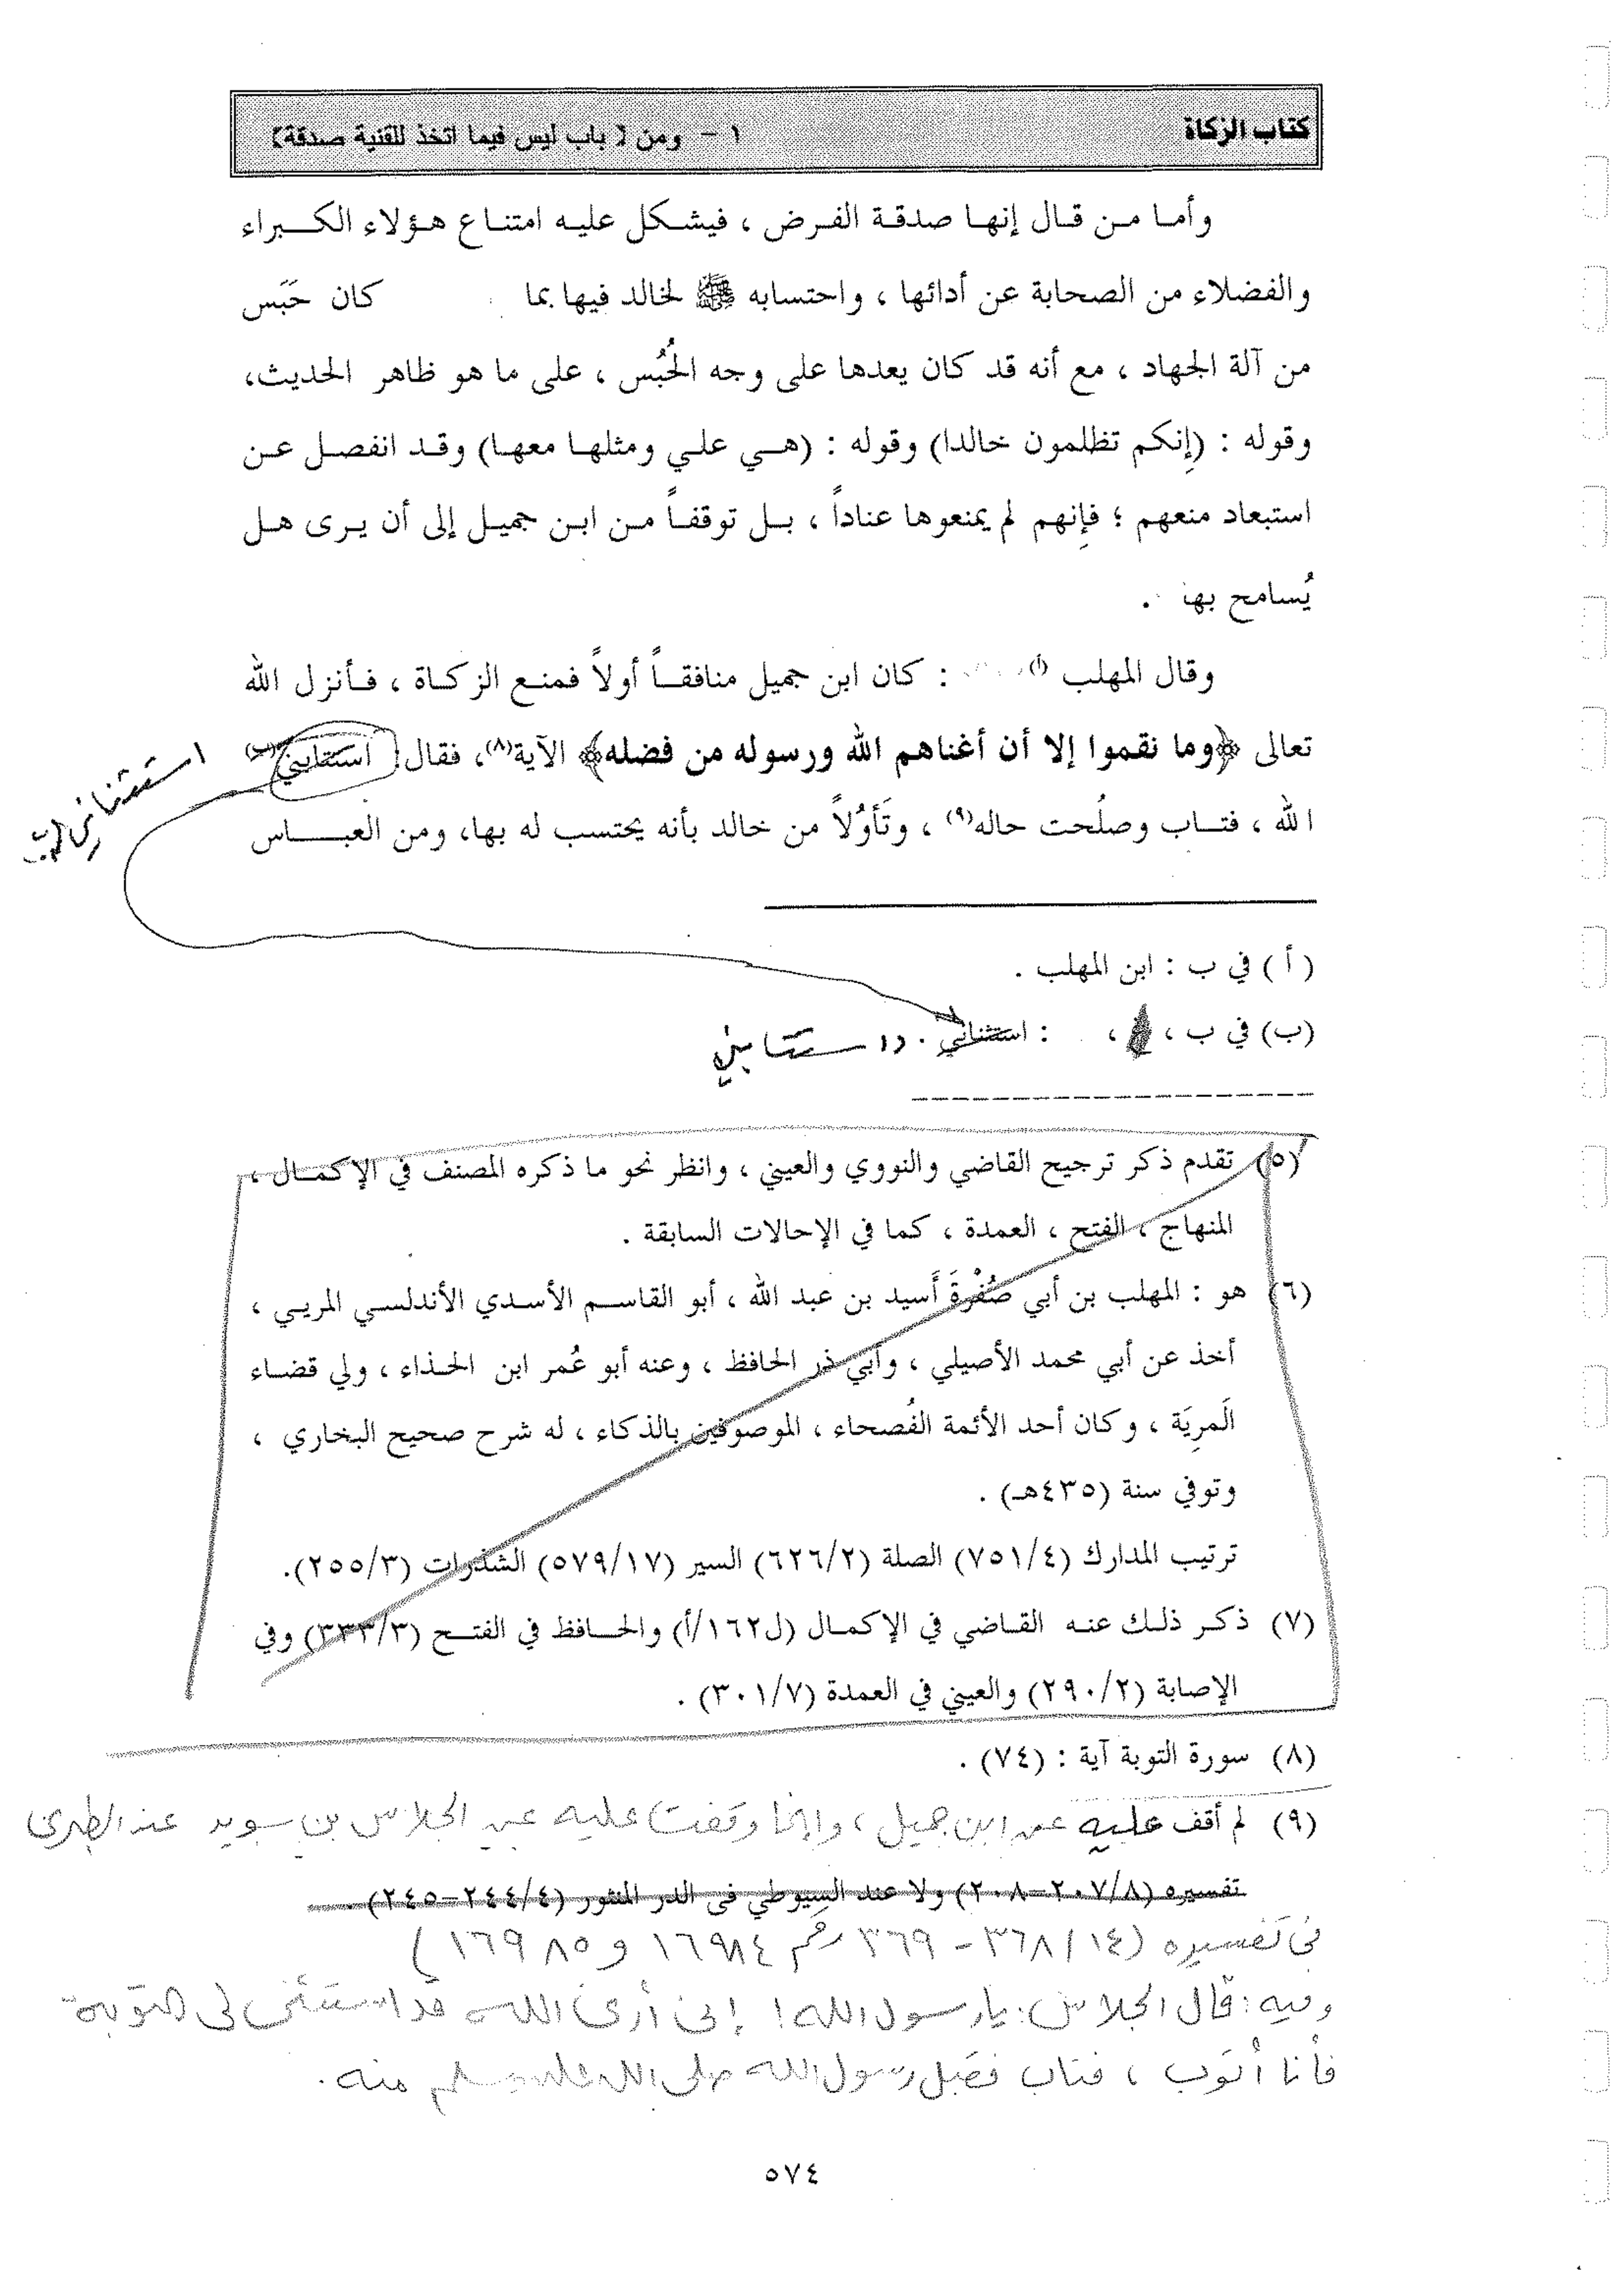 كتاب الزكاة
١ - ومن [ باب ليس فيما اتخذ للقنية صدقة]
وأما من قال إنها صدقة الفرض ، فيشكل عليه امتناع هؤلاء الكبراء
والفضلاء من الصحابة عن أدائها ، واحتسابه ﷺ لخالد فيها بما كان حَبَس
من آلة الجهاد ، مع أنه قد كان يعدها على وجه الحُبُس ، على ما هو ظاهر الحديث،
وقوله : (إنكم تظلمون خالدا) وقوله : (هي علي ومثلها معها) وقد انفصل عن
استبعاد منعهم ؛ فإنهم لم يمنعوها عناداً ، بل توقفاً من ابن جميل إلى أن يرى هل
يُسامح بها .
وقال المهلب (أ) : كان ابن جميل منافقاً أولاً فمنع الزكاة ، فأنزل الله
تعالى ﴿وما نقموا إلا أن أغناهم الله ورسوله من فضله﴾ الآية(٨)، فقال [ استتابني (ب)
استثناني (ب)
الله ، فتاب وصلُحت حاله(٩) ، وتَأوُّلاً من خالد بأنه يحتسب له بها، ومن العباس
(أ) في ب : ابن المهلب .
(ب) في ب ، ، : استثناني . استتابني
(٥) تقدم ذكر ترجيح القاضي والنووي والعيني ، وانظر نحو ما ذكره المصنف في الإكمال ،
المنهاج ، الفتح ، العمدة ، كما في الإحالات السابقة .
(٦) هو : المهلب بن أبي صُفْرةَ أَسيد بن عبد الله ، أبو القاسم الأسدي الأندلسي المريي ،
أخذ عن أبي محمد الأصيلي ، وأبي ذر الحافظ ، وعنه أبو عُمر ابن الحذاء ، ولي قضاء
الَمرِيَة ، وكان أحد الأئمة الفُصحاء ، الموصوفين بالذكاء ، له شرح صحيح البخاري ،
وتوفي سنة (٤٣٥هـ) .
ترتيب المدارك (٧٥١/٤) الصلة (٦٢٦/٢) السير (٥٧٩/١٧) الشذرات (٢٥٥/٣).
(٧) ذكر ذلك عنه القاضي في الإكمال (ل١٦٢/أ) والحافظ في الفتح (٣٣٣/٣) وفي
الإصابة (٢٩٠/٢) والعيني في العمدة (٣٠١/٧) .
(٨) سورة التوبة آية : (٧٤) .
(٩) لم أقف عليه عن ابن جميل ، وإنما وقفت عليه عن الجلاس بن سويد عند الطبري
تفسيره (٢٠٧/٨-٢٠٨) ولا عند السيوطي في الدر المنثور (٢٤٤/٤-٢٤٥) .
في تفسيره (١٤/ ٣٦٨ - ٣٦٩ رقم ١٦٩٨٤ و ١٦٩٨٥ )
وفيه : قال الجلاس : يا رسول الله ! إني أرى الله قد استثنى لي التوبة
فأنا أتوب ، فتاب فقبل رسول الله صلى الله عليه وسلم منه .
٥٧٤